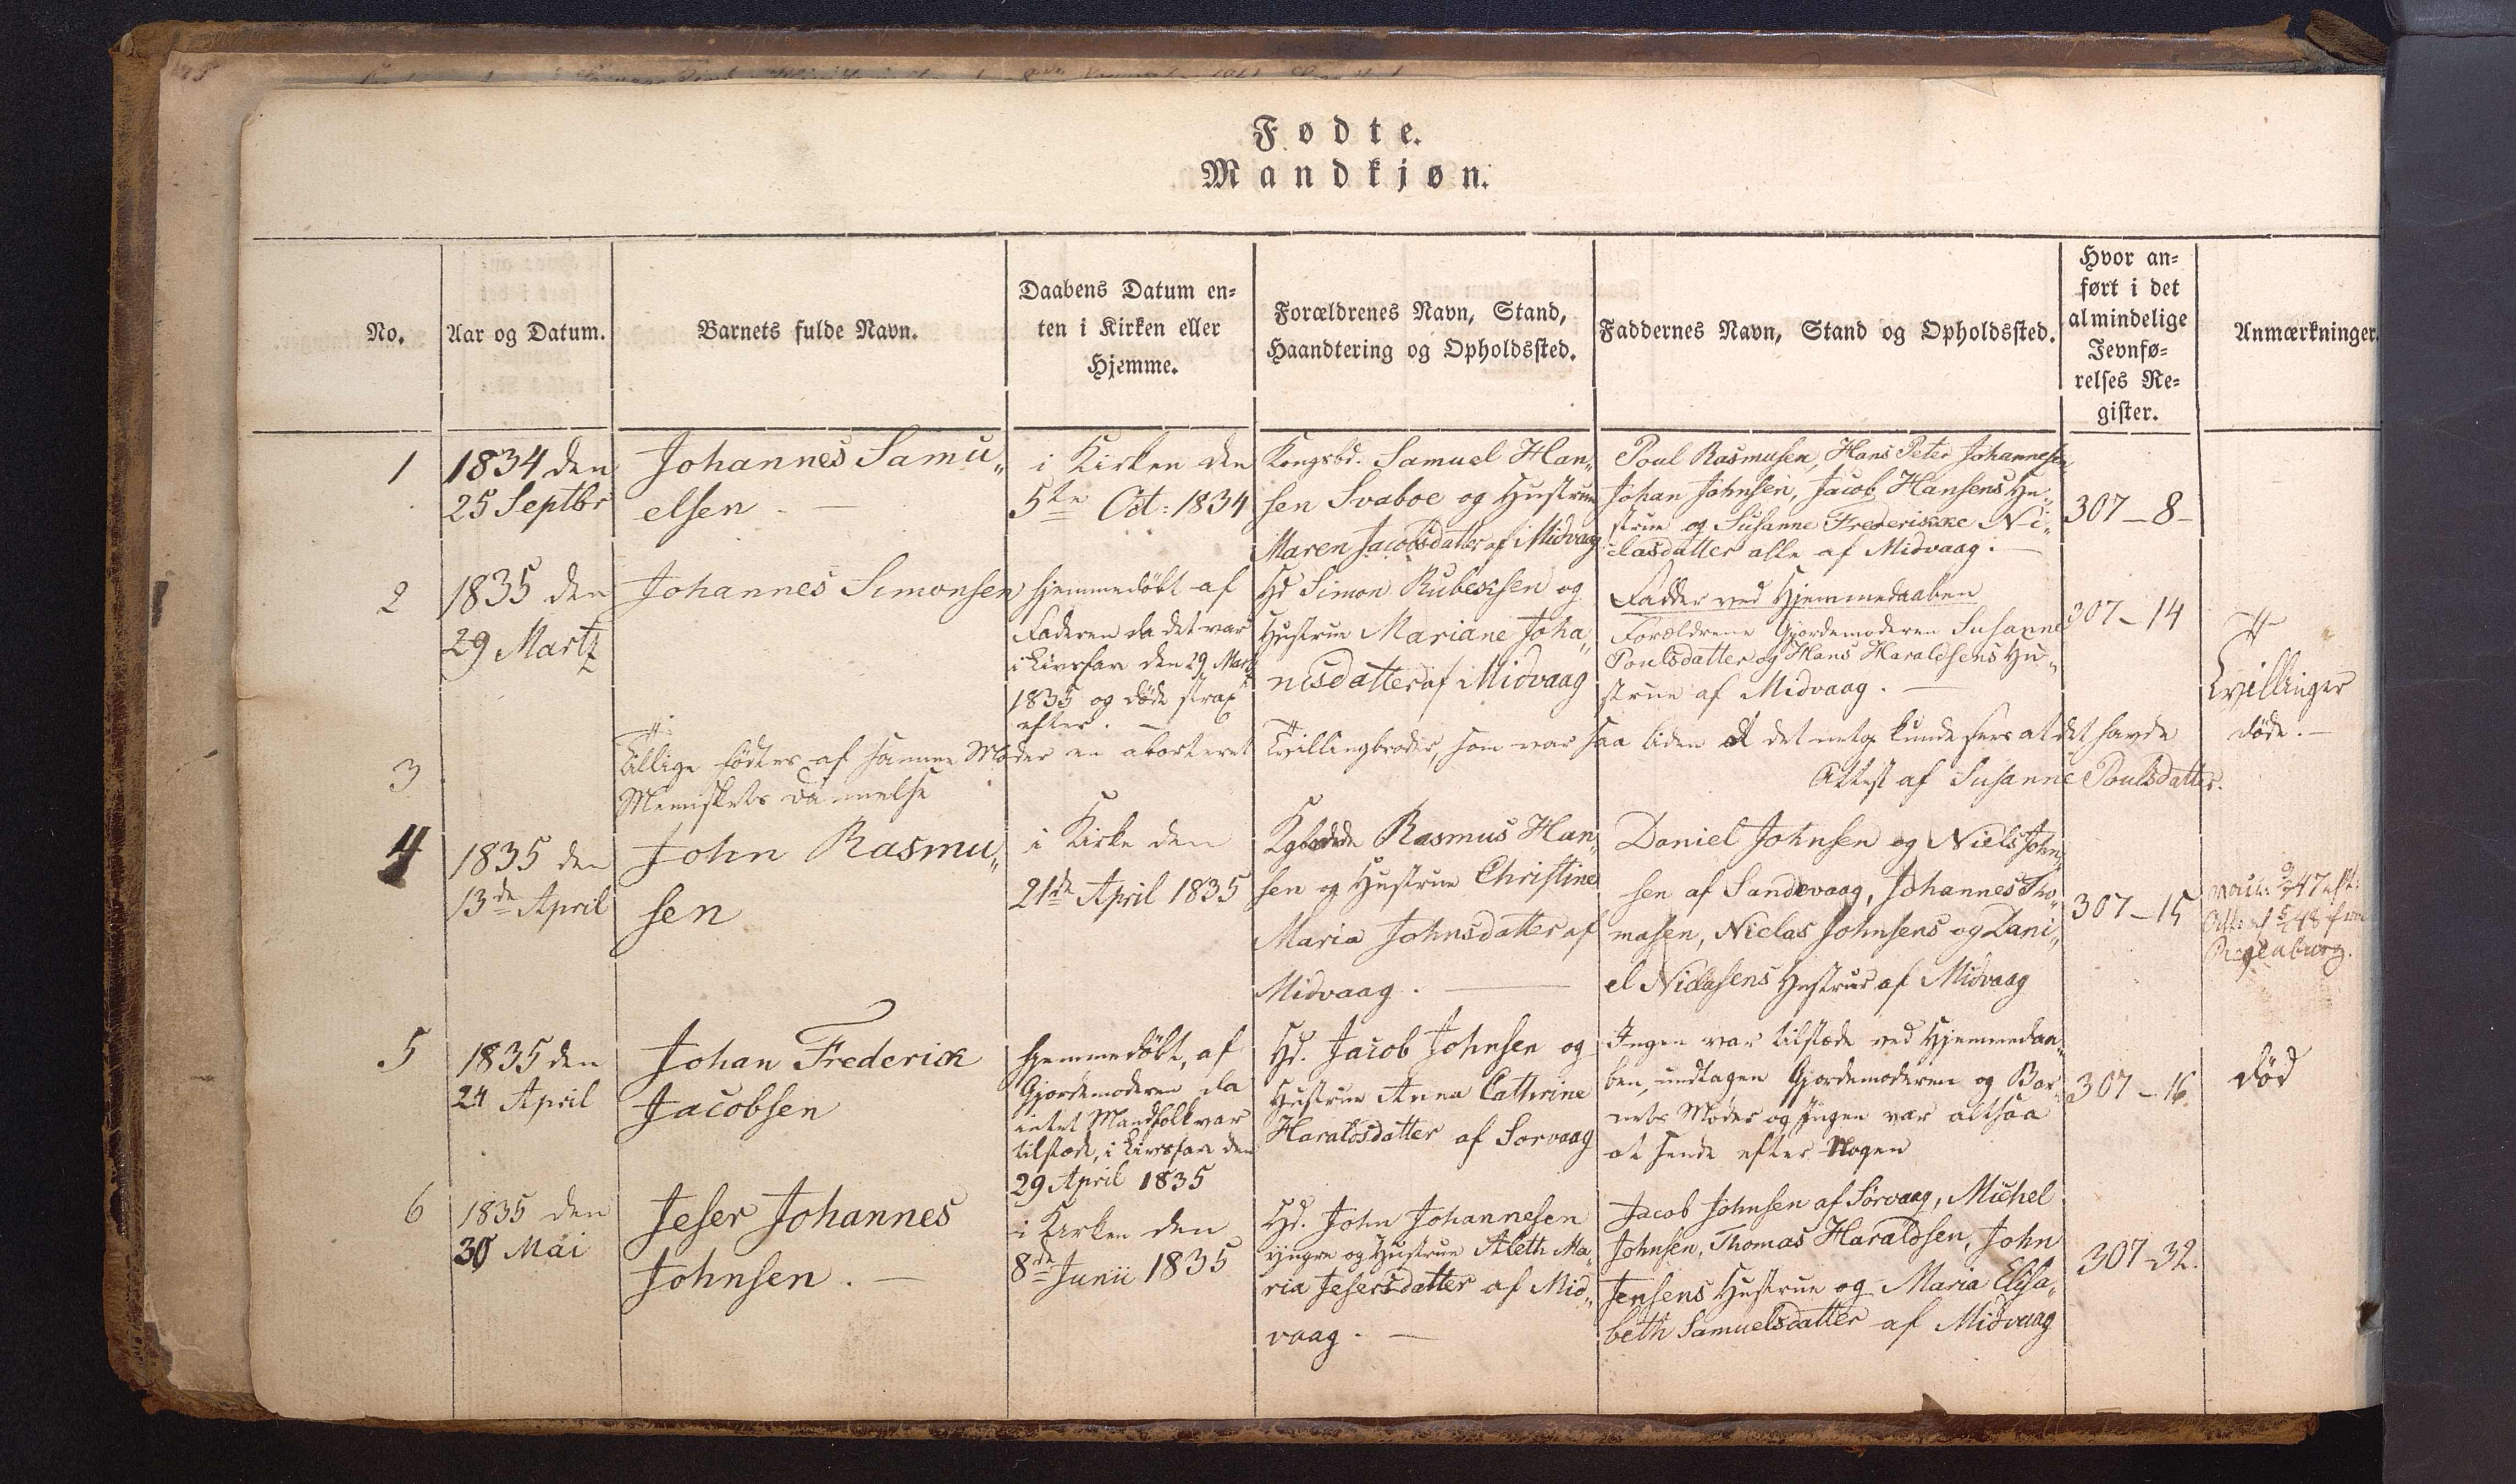 Fødte.
Mandkjøn.
No.
Aar og Datum.
Barnets fulde Navn.
Daabens Datum en=
ten i Kirken eller
Hjemme.
Forældrenes Navn, Stand,
Haandtering og Opholdssted.
Faddernes Navn, Stand og Opholdssted.
Hvor an=
ført i det
almindelige
Jevnfø=
relses Re=
gister.
Anmærkninger.
1
1834 den
25 Septbr
Johannes Samu„
elsen
i Kirken den
5te Oct: 1834
Kongsbd. Samuel Han„
sen Svaboe og Hustrue
Maren Jacobsdatter af Midvaag
Poul Rasmusen, Hans Peter Johannesen
Johan Johnsen, Jacob Hansens Hu„
strue og Susanne Frederikke Ni„
clasdatter alle af Midvaag.
307-8-
2
1835 den
29 Martz
Johannes Simonsen
hjemmedöbt af
Faderen da det var
i Livsfare den 29 Martz
1835 og döde strax
efter.
Hd Simon Rubeksen og
Hustrue Mariane Joha„
nesdatter af Midvaag
Fadder ved Hjemmedaaben
Forældrene Gjordemoderen Susanne
Poulsdatter og Hans Haraldsens Hu„
strue af Midvaag.
307-14
Tvillinger
döde.
3
Tillige födtes af samme Moder en aborteret Tvillingbroder, som var saa liden at det netop kunde sees at det havde
Menniskets Dannelse
Attest af Susanne Poulsdatter.
4
1835 den
13de April
John Rasmu„
sen
i Kirke den
21de April 1835
Rasmus Han„
sen og Hustrue Christine
Maria Johnsdatter af
Midvaag.
Daniel Johnsen og Niels John„
sen af Sandevaag, Johannes Tho„
masen, Niclas Johnsens og Dani„
el Niclasens Hustruer af Midvaag
307-15
5
1835 den
24 April
Johan Frederik
Jacobsen
hjemmedöbt, af
Gjordemoderen da
intet Mandfolk var
tilstæde, i Livsfare den
29 April 1835
Hd. Jacob Johnsen og
Hustrue Anna Cathrine
Haraldsdatter af Sorvaag
Ingen var tilstæde ved Hjemmedaa„
ben, undtagen Gjordemoderen og Bar„
nets Moder og Ingen var altsaa
at sende efter Nogen
307-16.
död
6
1835 den
30 Mai
Jeser Johannes
Johnsen.
i Kirken den
8de Junii 1835
Hd. John Johannesen
yngre og Hustrue Aleth Ma„
ria Jesersdatter af Mid„
vaag.
Jacob Johnsen af Sörvaag, Michel
Johnsen, Thomas Haraldsen, John
Jensens Hustrue og Maria Elisa„
beth Samuelsdatter af Midvaag
307-32.